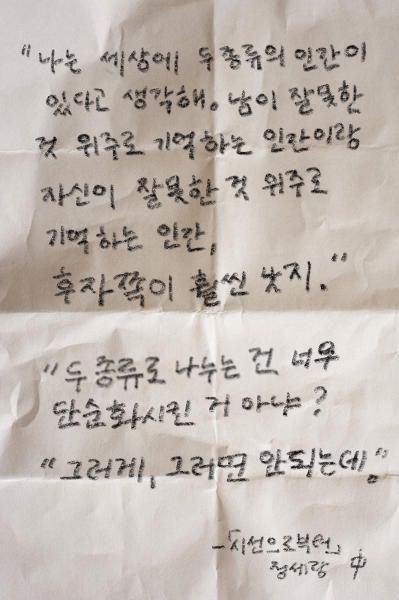 "나는 세상에 두 종류의 인간이
있다고 생각해. 남이 잘못한
것 위주로 기억하는 인간이랑
자신이 잘못한 것 위주로
기억하는 인간,
후자쪽이 훨씬 낫지."
"두 종류로 나누는 건 너무
단순화시킨 거 아냐?
"그러게, 그러면 안되는데."
-「시선으로부터」
정세랑 中